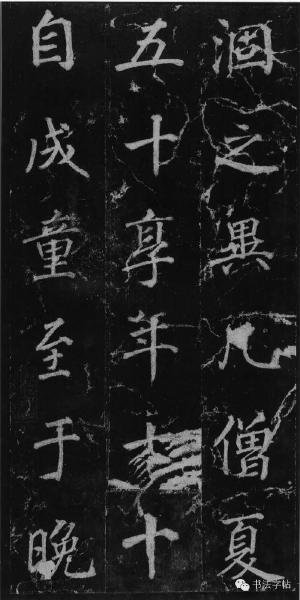 涸之異凡僧夏
五十享年七十
自成童至于晚
书法字帖